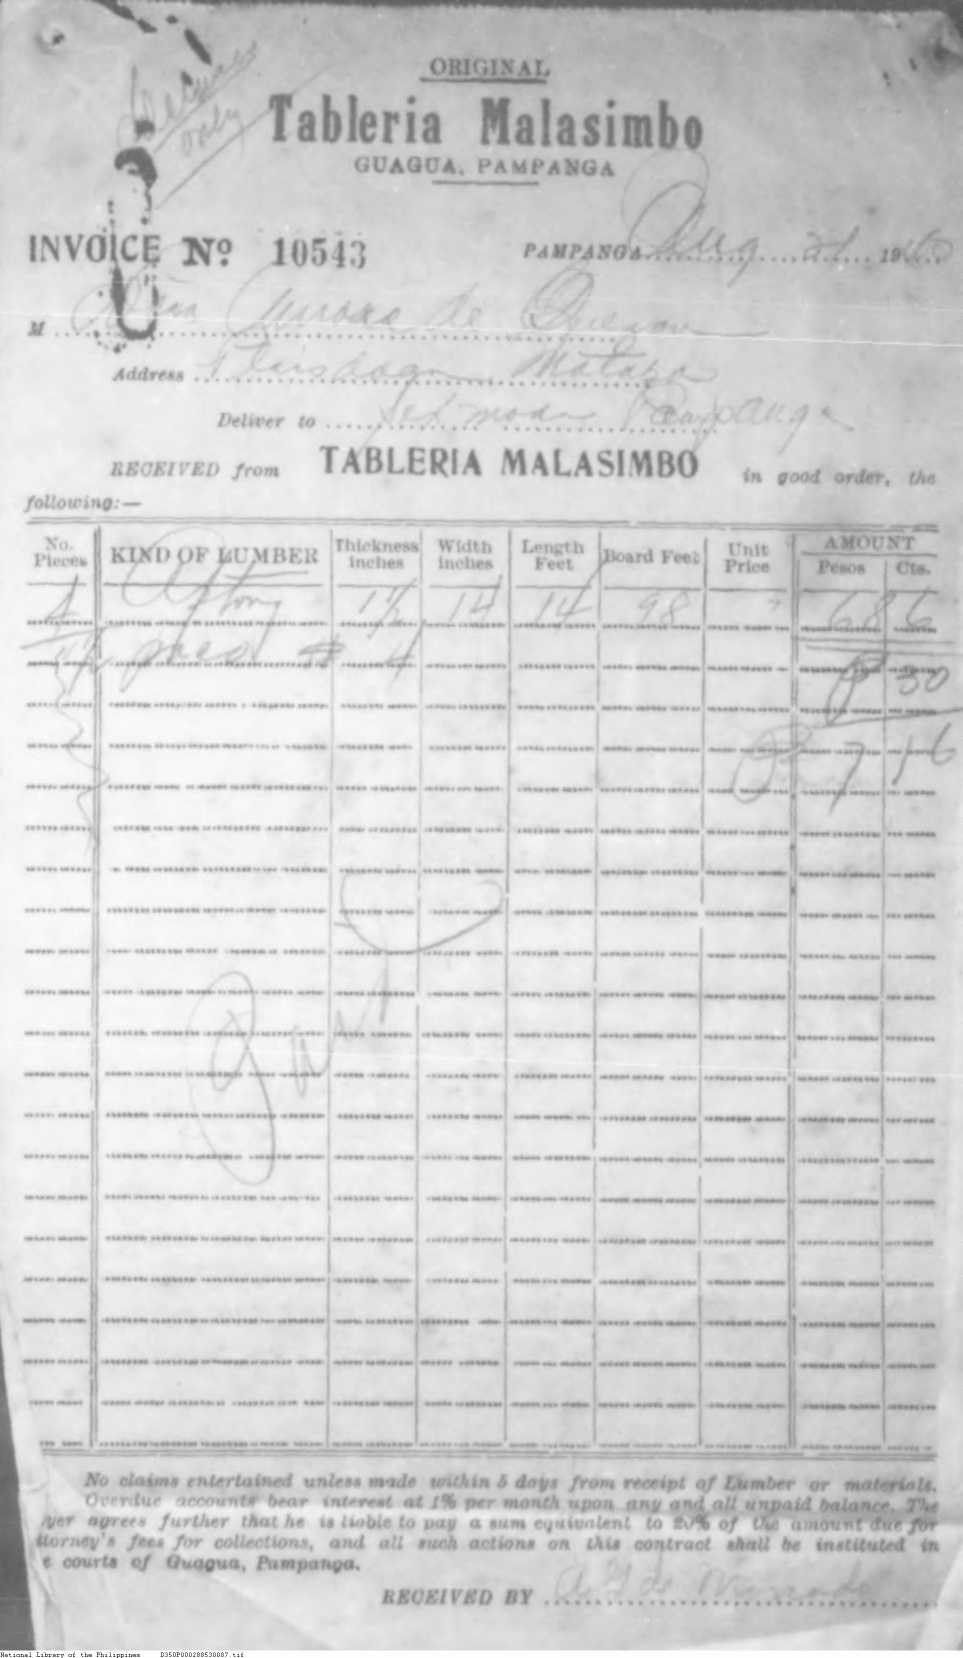 only
ORIGINAL
Tableria Malasimbo
GUAGUA, PAMPANGA
INVOICE No. 10543
PAMPANGA Aug 21 1940
M Aurora de Quezon
Address Mataba
Deliver to Pampanga
RECEIVED from TABLERIA MALASIMBO in good order, the
following:—
No. Pieces KIND OF LUMBER Thickness inches Width inches Length Feet Board Feet Unit Price AMOUNT Pesos Cts.
4 Apitong 1½ 14 14 98 7 6 86
paco # 4 P 30
P 7 16
Paid
No claims entertained unless made within 5 days from receipt of Lumber or materials.
Overdue accounts bear interest at 1% per month upon any and all unpaid balance. The
yer agrees further that he is liable to pay a sum equivalent to 20% of the amount due for
ttorney's fees for collections, and all such actions on this contract shall be instituted in
e courts of Guagua, Pampanga.
RECEIVED BY
National Library of the Philippines D350P000288530087.tif